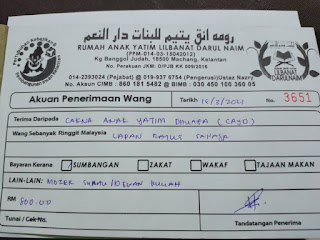 رومه انق يتيم للبنات دار النعيم
RUMAH ANAK YATIM LILBANAT DARUL NAIM
(PPM-014-03-15042012)
Kg Banggol Judah, 18500 Machang, Kelantan
No. Perakuan JKM: DIPJB KK 009/2016
014-2393024 (Pejabat) @ 019-937 9754 (Pengerusi/Ustaz Nazri)
No. Akaun CIMB : 860 181 5482 @ BIMB : 030 450 100 360 05
LILBANAT
DARULNAIM
Akuan Penerimaan Wang
Tarikh 18/3/2021
No. 3651
Terima Daripada CAKNA ANAK YATIM DHUAFA (CAYD)
Wang Sebanyak Ringgit Malaysia LAPAN RATUS SAHAJA
Bayaran Kerana : / SUMBANGAN ZAKAT WAKAF TAJAAN MAKAN
LAIN-LAIN: MOREH SUBUH/DELAN BULUH
RM 800.00
Tunai / Cek No.
Tandatangan Penerima